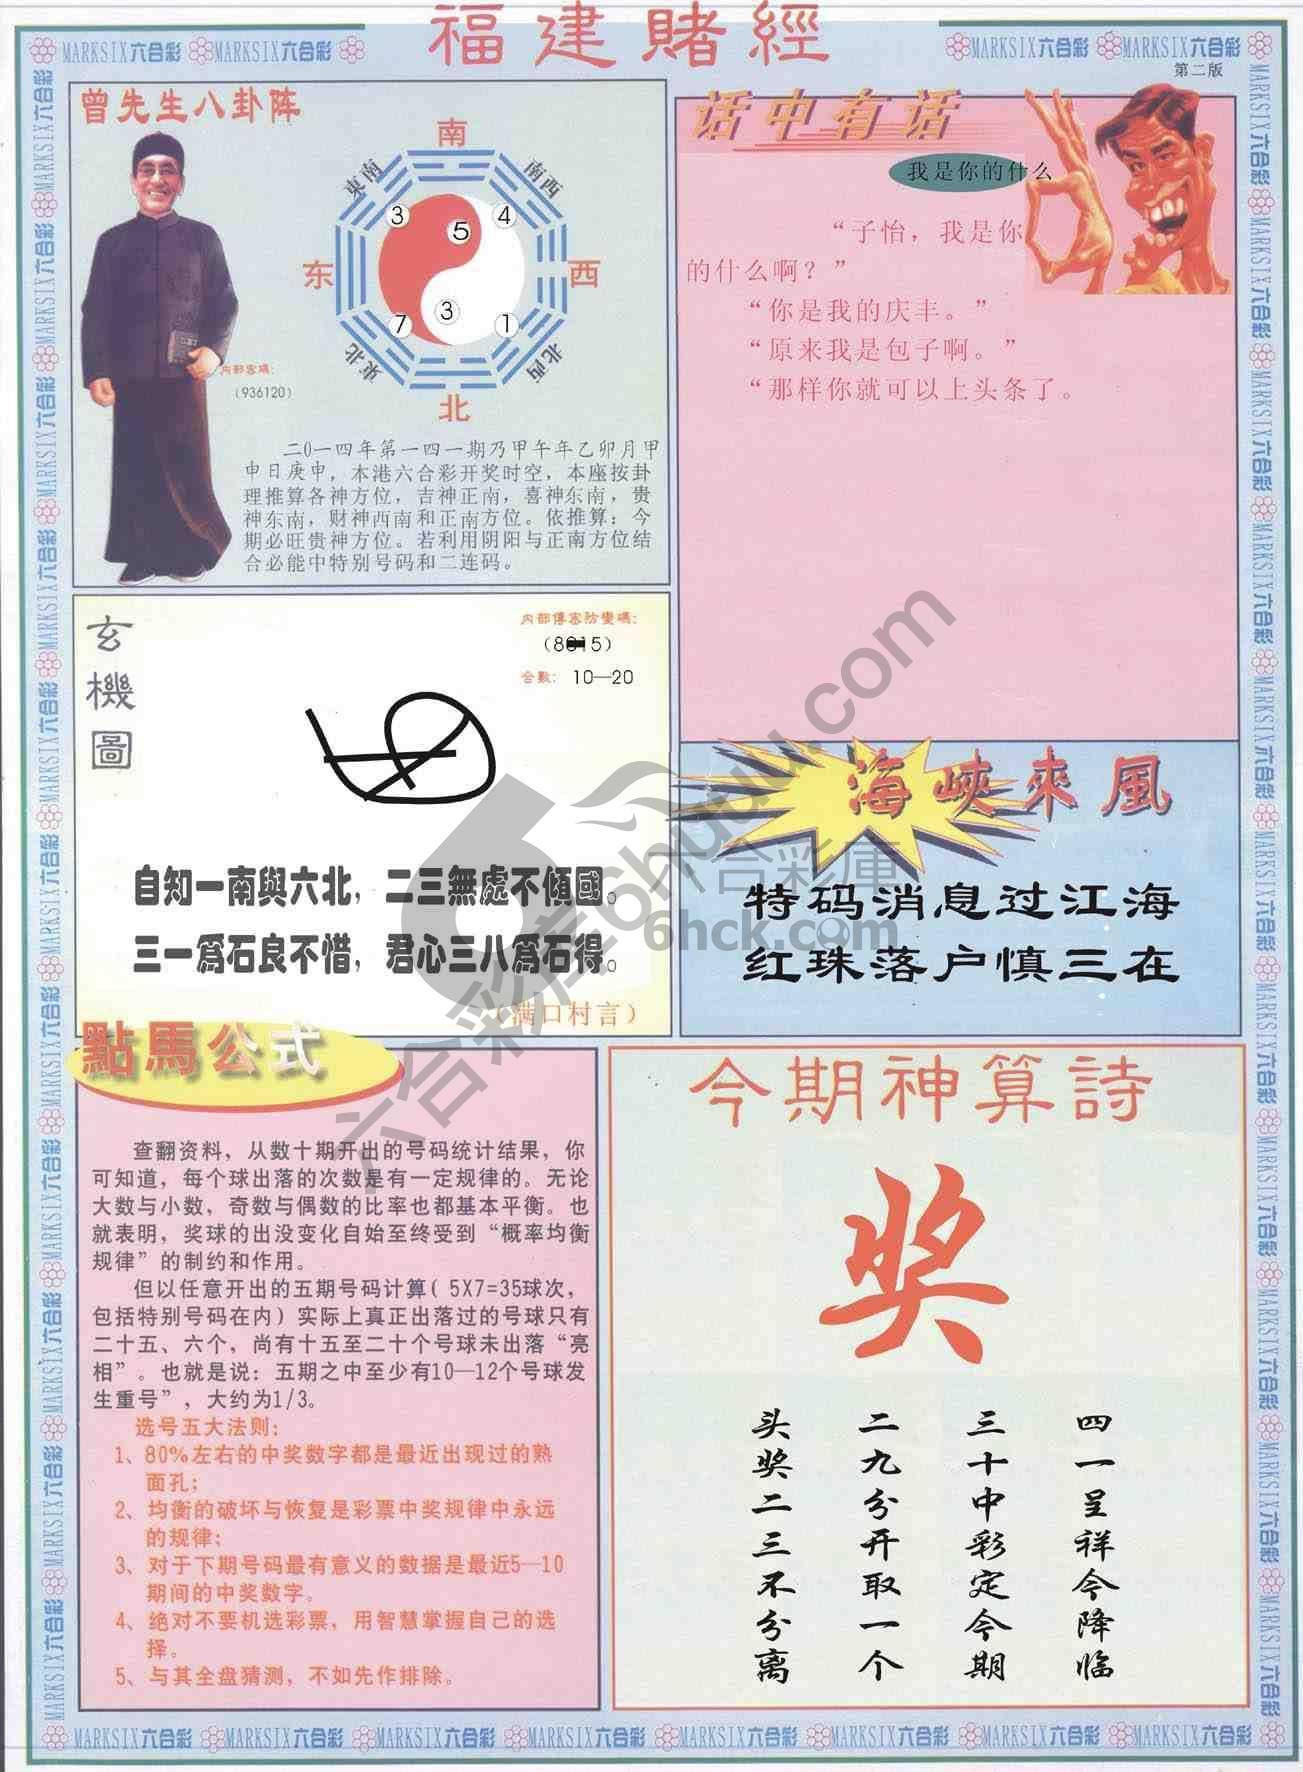 福建賭經
MARKSIX六合彩 MARKSIX六合彩
MARKSIX六合彩 MARKSIX六合彩
第二版
曾先生八卦阵
南
東南
南西
3
5
4
东
西
7
3
1
東北
北西
北
内部密碼:
(936120)
二0一四年第一四一期乃甲午年乙卯月甲
申日庚申，本港六合彩开奖时空，本座按卦
理推算各神方位，吉神正南，喜神东南，贵
神东南，财神西南和正南方位。依推算：今
期必旺贵神方位。若利用阴阳与正南方位结
合必能中特别号码和二连码。
话中有话
我是你的什么
“子怡，我是你
的什么啊？”
“你是我的庆丰。”
“原来我是包子啊。”
“那样你就可以上头条了。
玄機圖
内部傳密防變碼:
合數: 10—20
自知一南與六北，二三無處不傾國。
三一為石良不惜，君心三八為石得。
（满口村言）
海峽來風
特码消息过江海
红珠落户慎三在
點馬公式
查翻资料，从数十期开出的号码统计结果，你
可知道，每个球出落的次数是有一定规律的。无论
大数与小数，奇数与偶数的比率也都基本平衡。也
就表明，奖球的出没变化自始至终受到“概率均衡
规律”的制约和作用。
但以任意开出的五期号码计算( 5X7=35球次，
包括特别号码在内）实际上真正出落过的号球只有
二十五、六个，尚有十五至二十个号球未出落“亮
相”。也就是说：五期之中至少有10—12个号球发
生重号”，大约为1/3。
选号五大法则：
1、80%左右的中奖数字都是最近出现过的熟
面孔；
2、均衡的破坏与恢复是彩票中奖规律中永远
的规律；
3、对于下期号码最有意义的数据是最近5—10
期间的中奖数字。
4、绝对不要机选彩票，用智慧掌握自己的选
择。
5、与其全盘猜测，不如先作排除。
今期神算詩
奖
四一呈祥今降临
三十中彩定今期
二九分开取一个
头奖二三不分离
六合彩库6hcuku.com
六合彩庫
6hck.com
MARKSIX六合彩 MARKSIX六合彩 MARKSIX六合彩 MARKSIX六合彩 MARKSIX六合彩 MARKSIX六合彩 MARKSIX六合彩 MARKSIX六合彩